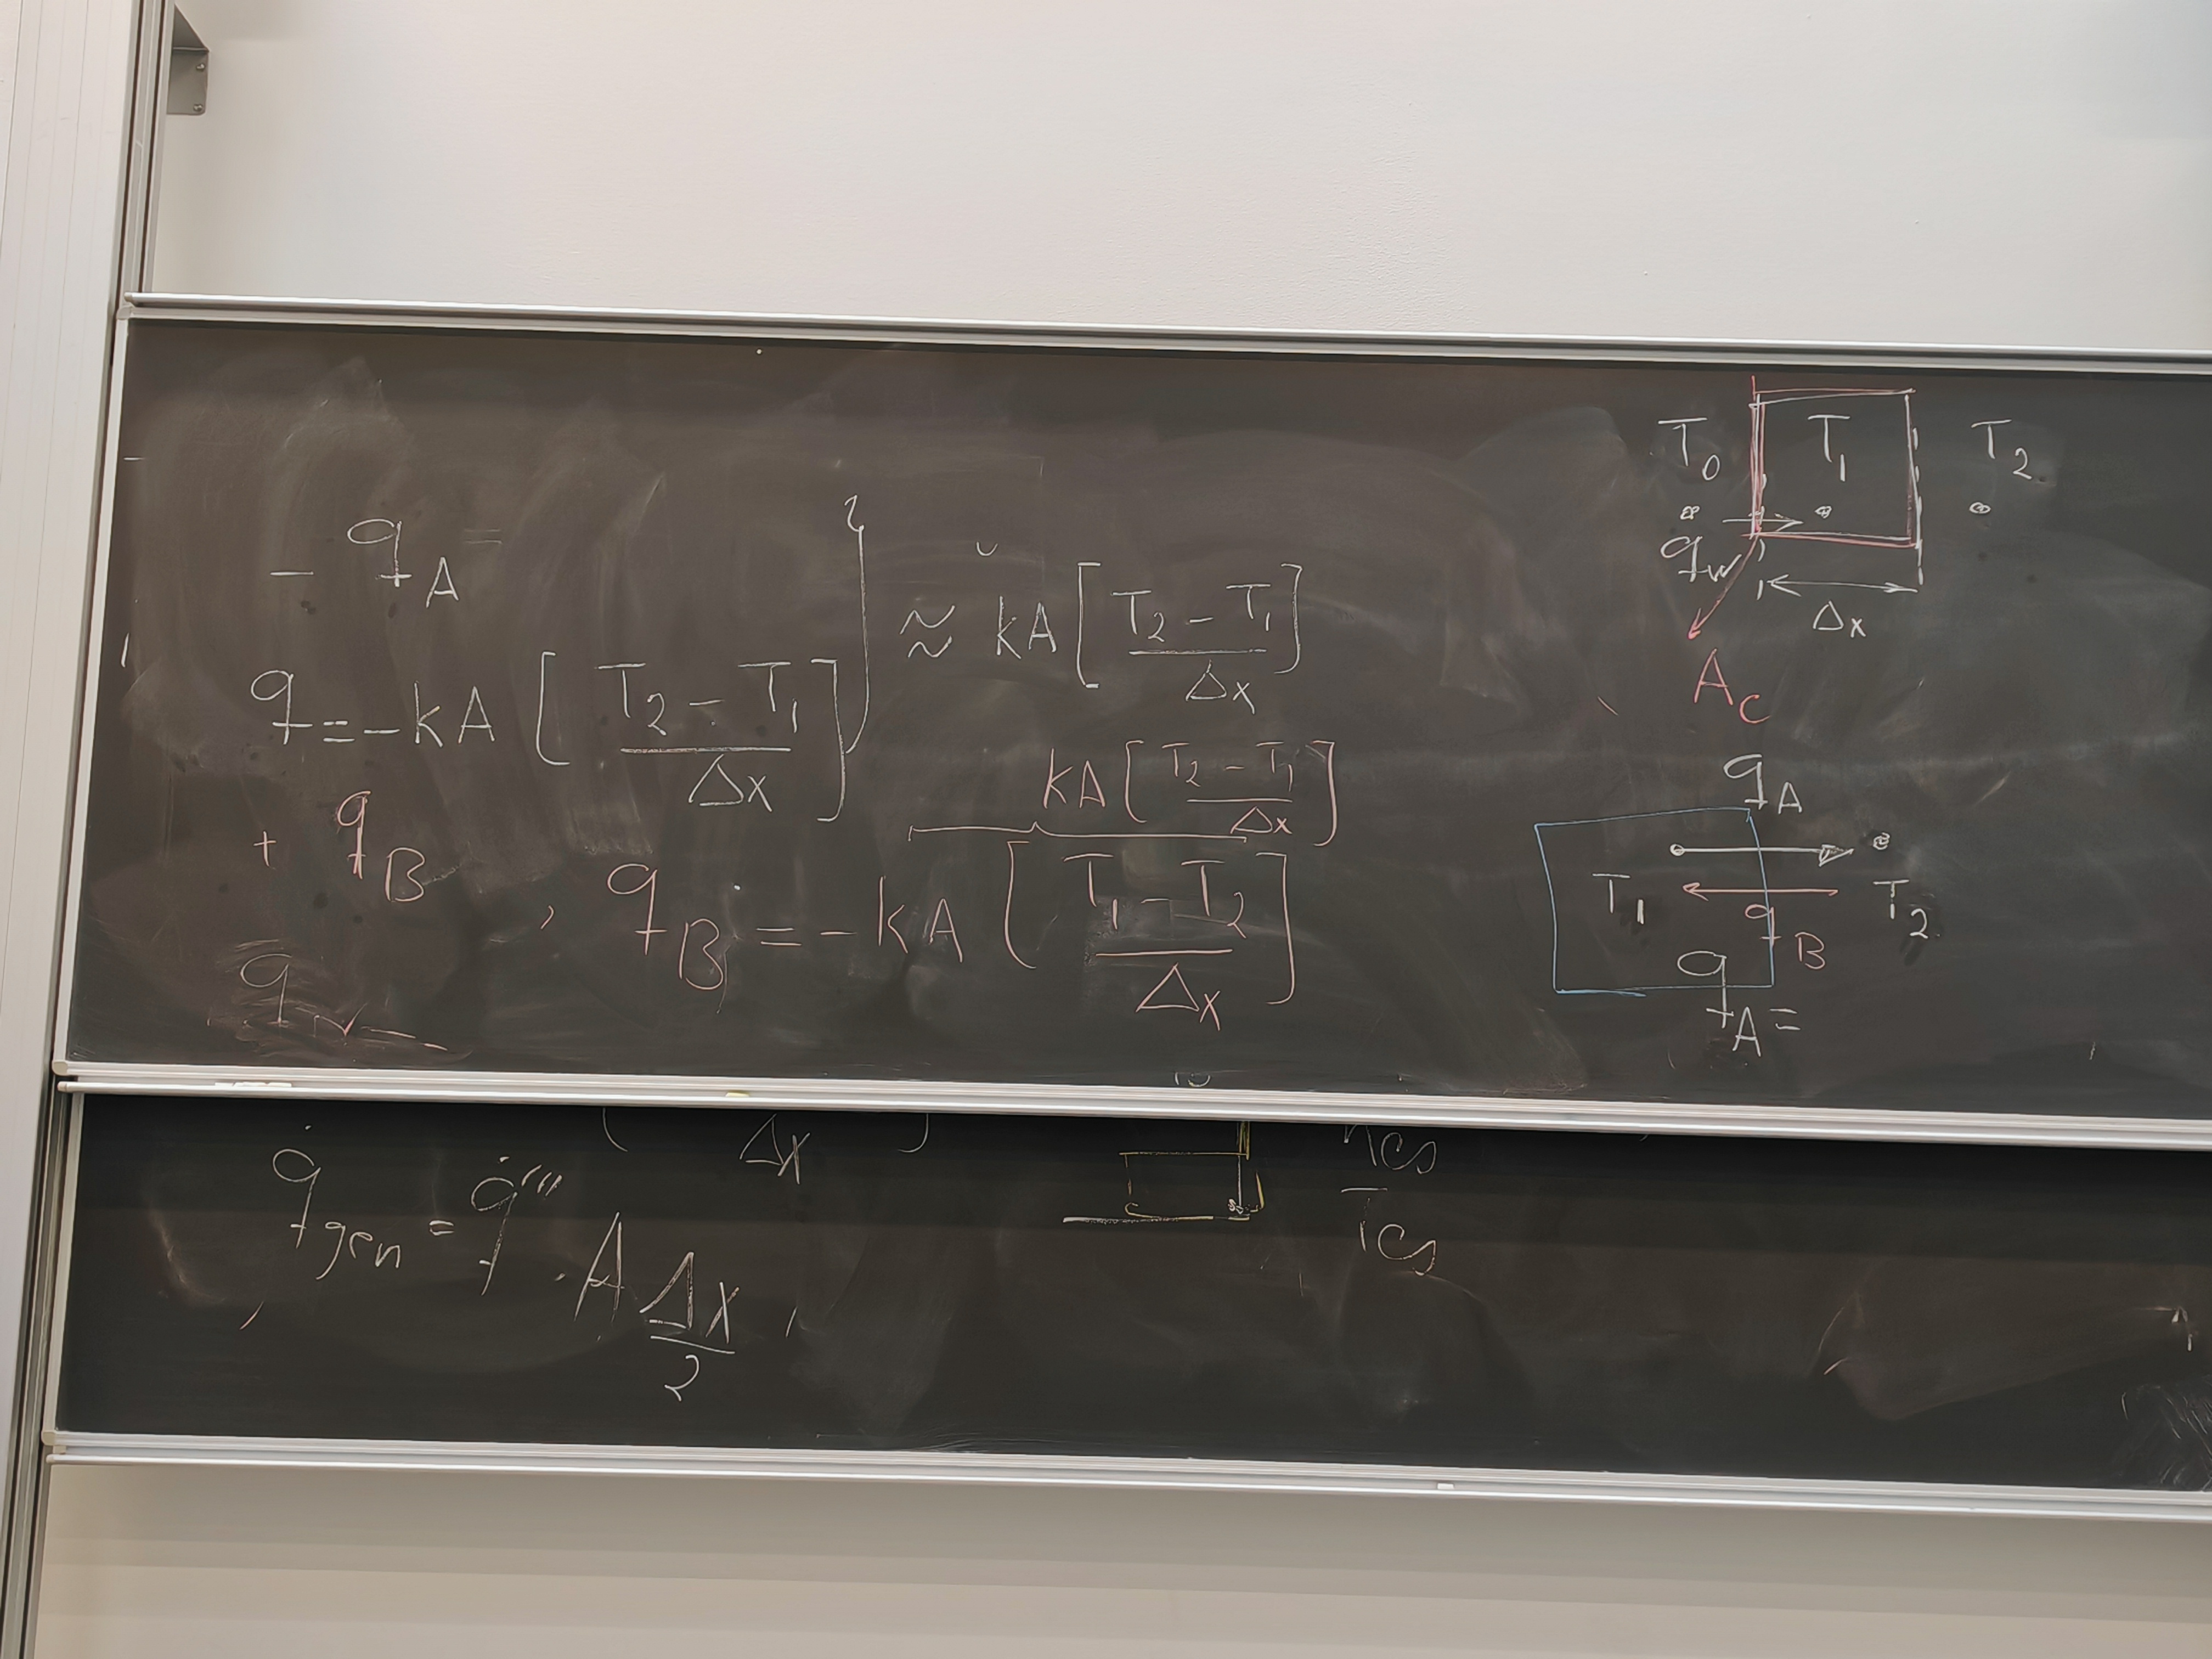 - q_A =
q = -kA [ (T_2 - T_1) / Δx ] } ≈ kA [ (T_2 - T_1) / Δx ]
kA [ (T_2 - T_1) / Δx ]
+ q_B , q_B = -kA [ (T_1 - T_2) / Δx ]
q
T_0 T_1 T_2
q_w
Δx
A_C
q_A
T_1 T_2
q_B
q_A =
Δx
q̇_gen = q̇''' · A Δx / 2
T